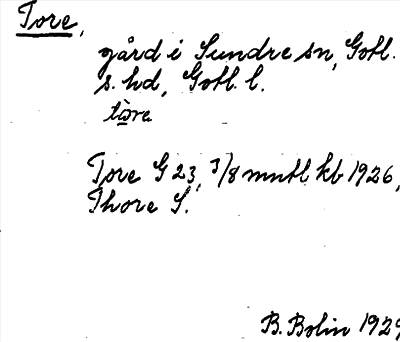 Tore,
gård i Sundre sn, Gotl.
s. hd, Gotl. l.
Tore G 23, 3/8 mntl kb 1926,
Thore S.
B. Bolin 1929